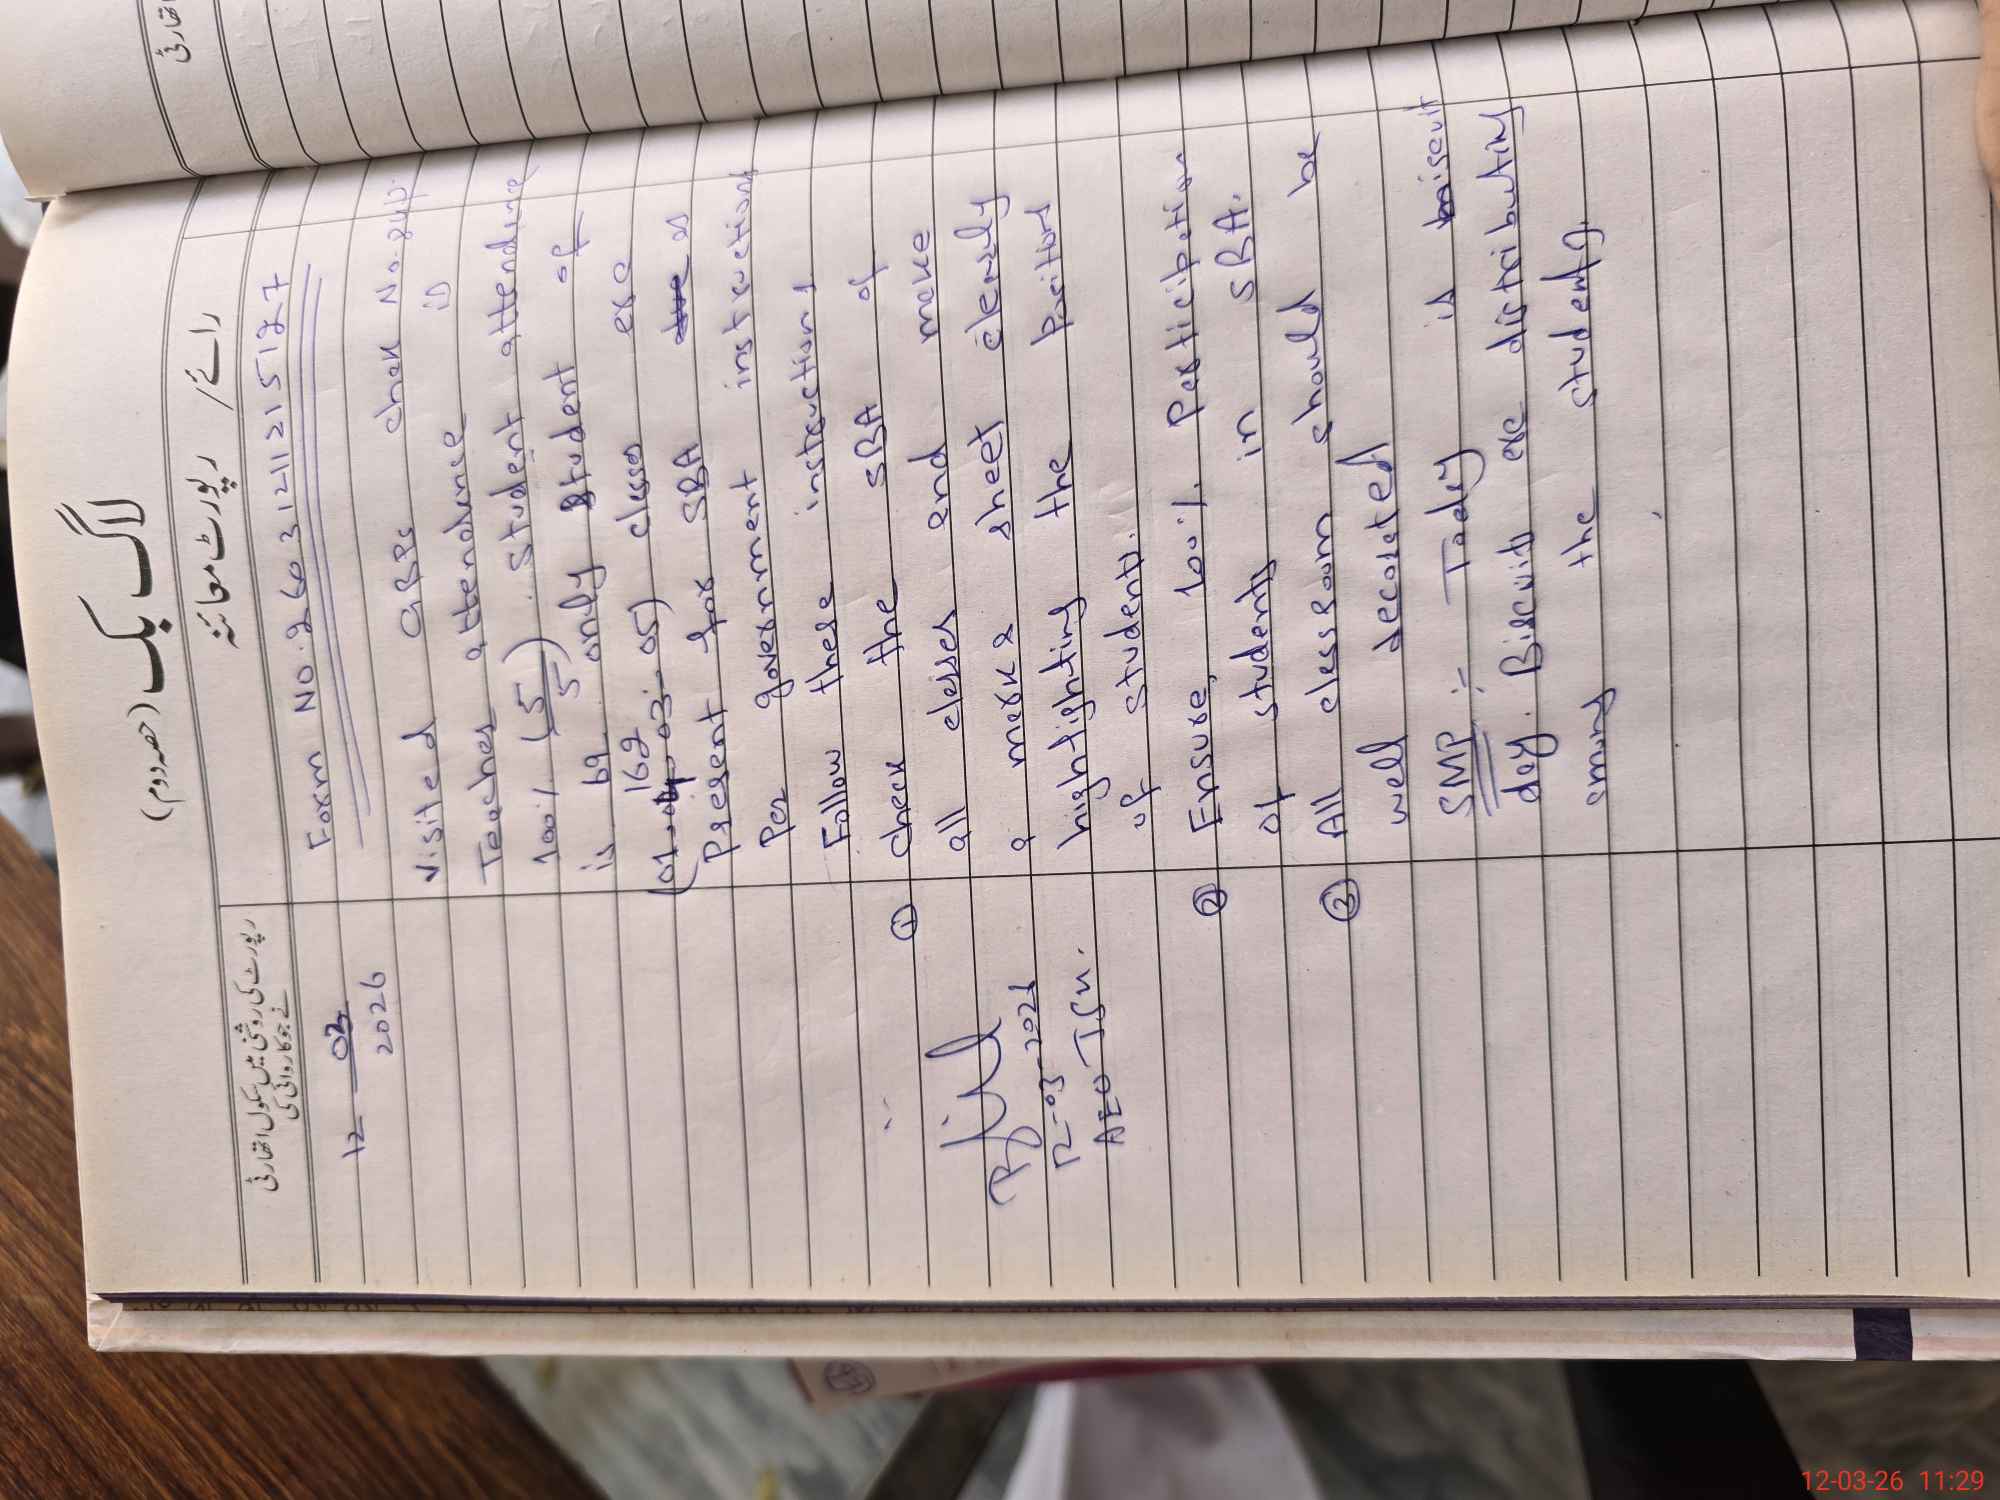 لاگ بک (حصہ دوم)
رپورٹ معائنہ / رائے
رپورٹ کی روشنی میں سکول اتھارٹی
نے جو کاروائی کی
12 03
2026
Form No. 26031211215127
Visited GBPS Chak No.
Teacher attendance is
100% (5/5). Student attendance
is 69 only student of
162
(01-04-03-05) classes are
Present for SBA as
Per government instructions
Follow these instructions
① check the SBA of
all classes and make
a mark sheet clearly
highlighting the position
of students.
② Ensure, 100% Participation
of students in SBA.
③ All classroom should be
well decorated
SMP :- Today is biscuit
day. Biscuits are distributing
among the students.
12-03-2026
AEO
اتھارٹی
12-03-26 11:29